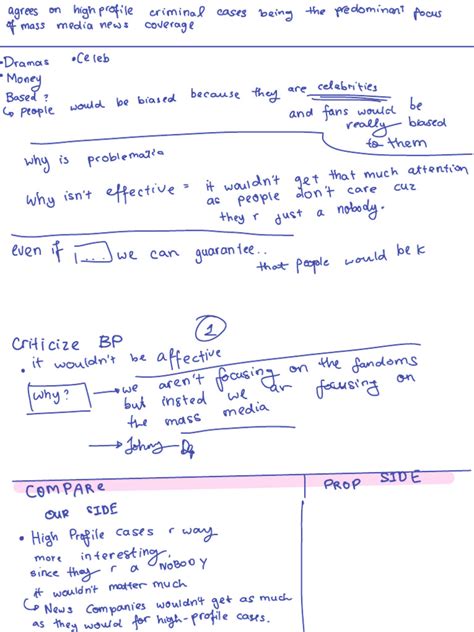 agrees on high profile criminal cases being the predominant focus
of mass media news coverage
• Dramas • Celeb
• Money
Based?
↳ people would be biased because they are celebrities
and fans would be
really biased
to them
why is problematic
why isn't effective = it wouldn't get that much attention
as people don't care cuz
they r just a nobody.
even if [....] we can guarantee..
that people would be k
①
Criticize BP
• it wouldn't be affective
Why? → we aren't focusing on the fandoms
but insted we ar focusing on
the mass media
→ Johny Dp
COMPARE PROP SIDE
OUR SIDE
• High Profile cases r way
more interesting.
since they r a NOBODY
it wouldn't matter much
↳ News Companies wouldn't get as much
as they would for high-profile cases.